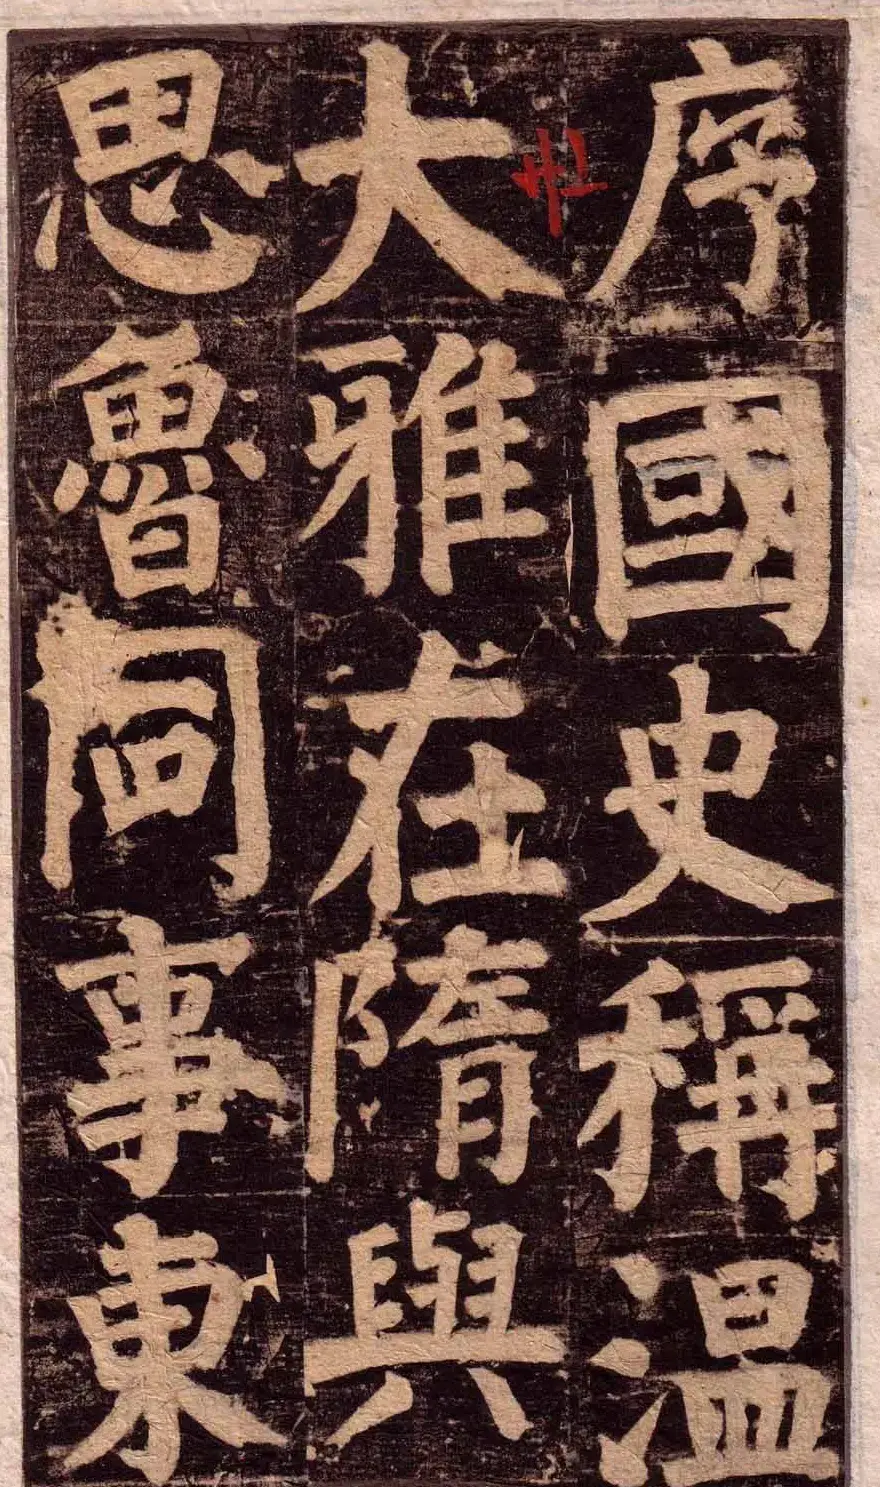 序國史稱温
大雅在隋與
思魯同事東